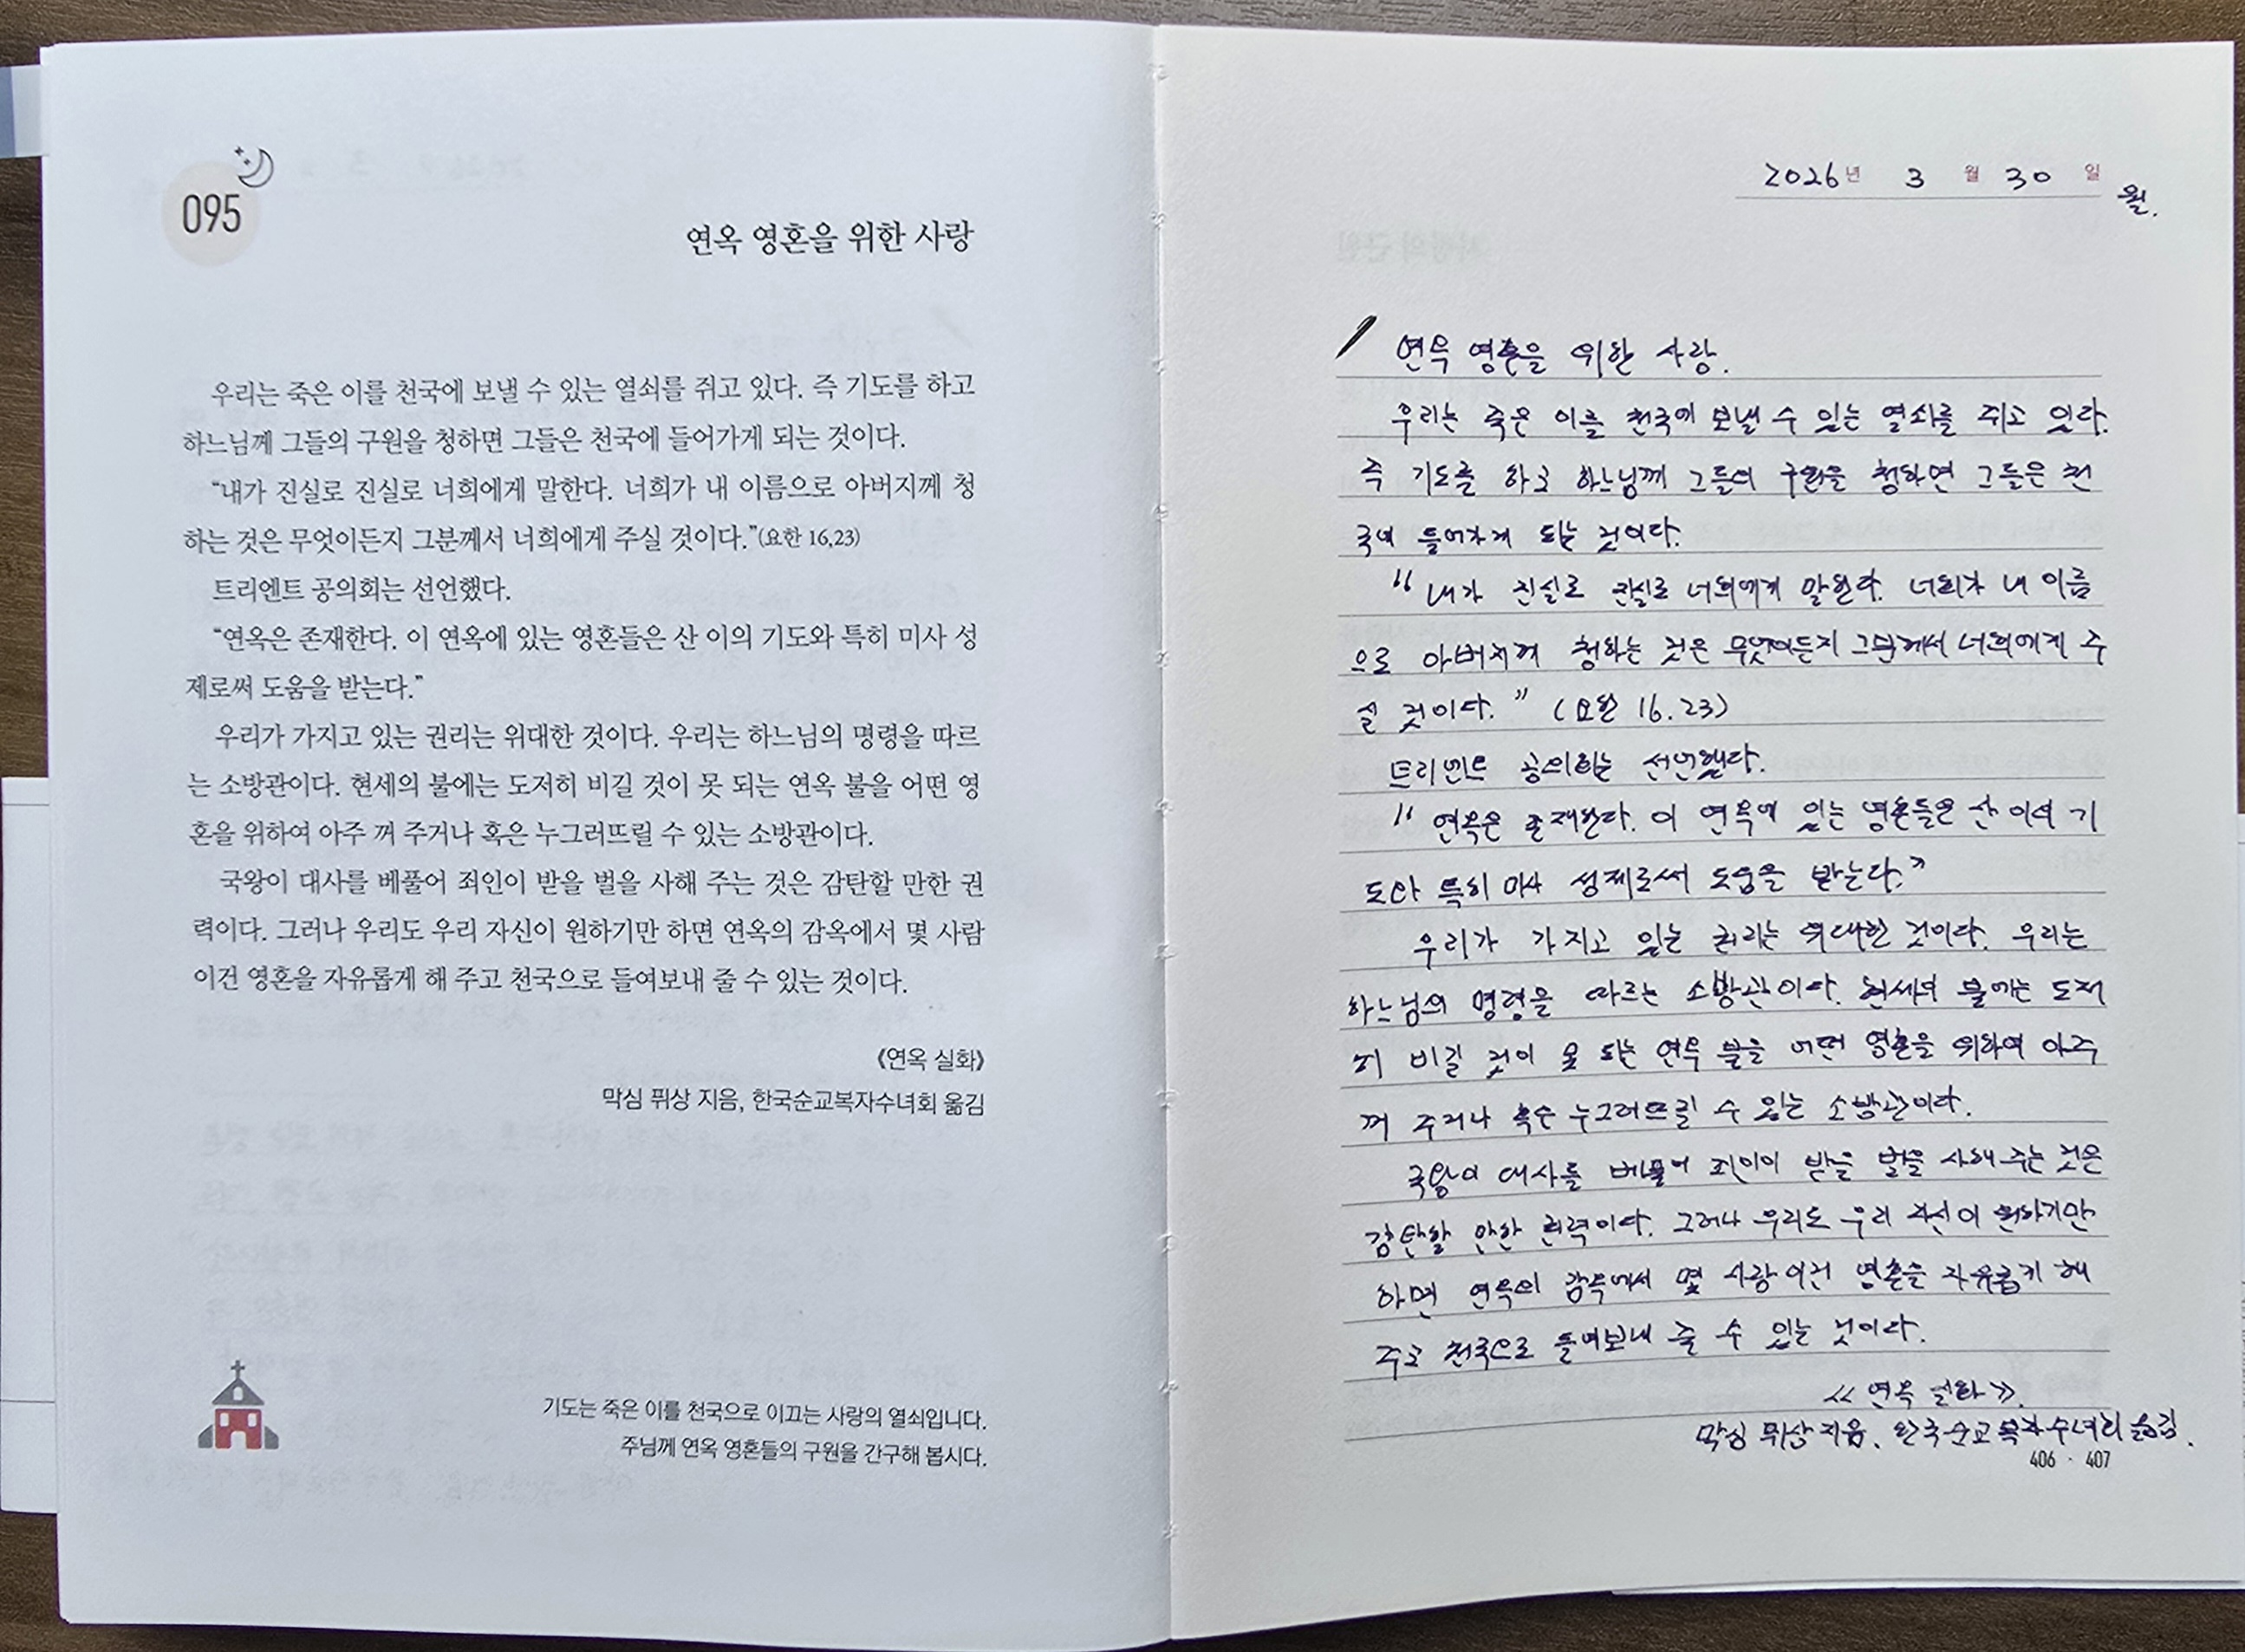 095
연옥 영혼을 위한 사랑
우리는 죽은 이를 천국에 보낼 수 있는 열쇠를 쥐고 있다. 즉 기도를 하고
하느님께 그들의 구원을 청하면 그들은 천국에 들어가게 되는 것이다.
“내가 진실로 진실로 너희에게 말한다. 너희가 내 이름으로 아버지께 청
하는 것은 무엇이든지 그분께서 너희에게 주실 것이다.”(요한 16,23)
트리엔트 공의회는 선언했다.
“연옥은 존재한다. 이 연옥에 있는 영혼들은 산 이의 기도와 특히 미사 성
제로써 도움을 받는다.”
우리가 가지고 있는 권리는 위대한 것이다. 우리는 하느님의 명령을 따르
는 소방관이다. 현세의 불에는 도저히 비길 것이 못 되는 연옥 불을 어떤 영
혼을 위하여 아주 꺼 주거나 혹은 누그러뜨릴 수 있는 소방관이다.
국왕이 대사를 베풀어 죄인이 받을 벌을 사해 주는 것은 감탄할 만한 권
력이다. 그러나 우리도 우리 자신이 원하기만 하면 연옥의 감옥에서 몇 사람
이건 영혼을 자유롭게 해 주고 천국으로 들여보내 줄 수 있는 것이다.
《연옥 실화》
막심 퓌상 지음, 한국순교복자수녀회 옮김
기도는 죽은 이를 천국으로 이끄는 사랑의 열쇠입니다.
주님께 연옥 영혼들의 구원을 간구해 봅시다.
2026년 3월 30일 월.
연옥 영혼을 위한 사랑.
우리는 죽은 이를 천국에 보낼 수 있는 열쇠를 쥐고 있다.
즉 기도를 하고 하느님께 그들의 구원을 청하면 그들은 천
국에 들어가게 되는 것이다.
“내가 진실로 진실로 너희에게 말한다. 너희가 내 이름
으로 아버지께 청하는 것은 무엇이든지 그분께서 너희에게 주
실 것이다.” (요한 16.23)
트리엔트 공의회는 선언했다.
“연옥은 존재한다. 이 연옥에 있는 영혼들은 산 이의 기
도와 특히 미사 성제로써 도움을 받는다.”
우리가 가지고 있는 권리는 위대한 것이다. 우리는
하느님의 명령을 따르는 소방관이다. 현세의 불에는 도저
히 비길 것이 못 되는 연옥 불을 어떤 영혼을 위하여 아주
꺼 주거나 혹은 누그러뜨릴 수 있는 소방관이다.
국왕이 대사를 베풀어 죄인이 받을 벌을 사해 주는 것은
감탄할 만한 권력이다. 그러나 우리도 우리 자신이 원하기만
하면 연옥의 감옥에서 몇 사람이건 영혼을 자유롭게 해
주고 천국으로 들여보내 줄 수 있는 것이다.
《연옥 실화》.
막심 퓌상 지음, 한국순교복자수녀회 옮김.
406 · 407